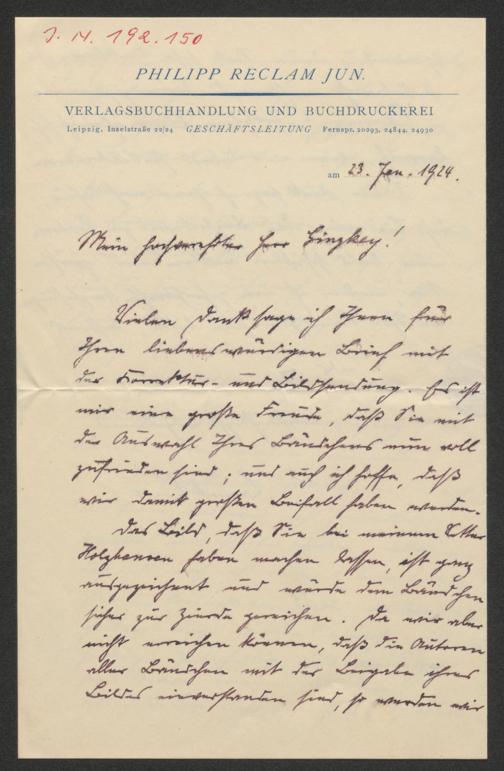 J. N. 192.150
PHILIPP RECLAM JUN.
VERLAGSBUCHHANDLUNG UND BUCHDRUCKEREI
Leipzig, Inselstraße 22/24 GESCHÄFTSLEITUNG Fernspr. 20293, 24844, 24930
am 23. Jan. 1924.
Mein hochverehrter Herr Ginzkey!
Vielen Dank sage ich Ihnen für
Ihren liebenswürdigen Brief mit
der Korrektur- und Bildsendung. Es ist
mir eine große Freude, daß Sie mit
der Auswahl Ihres Bändchens nun voll
zufrieden sind; und auch ich hoffe, daß
wir damit großen Beifall haben werden.
Das Bild, daß Sie bei meinem Vetter
haben machen lassen, ist ganz
ausgezeichnet und würde dem Bändchen
sicher zur Zierde gereichen. Da wir aber
nicht erreichen können, daß die Autoren
aller Bändchen mit der Beigabe ihres
Bildes einverstanden sind, so werden wir